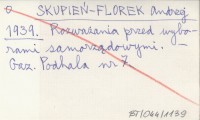 SKUPIEŃ-FLOREK Andrzej
1939. Rozważania przed wybo-
rami samorządowymi. —
Gaz. Podhala nr 7.
BT/044/1139